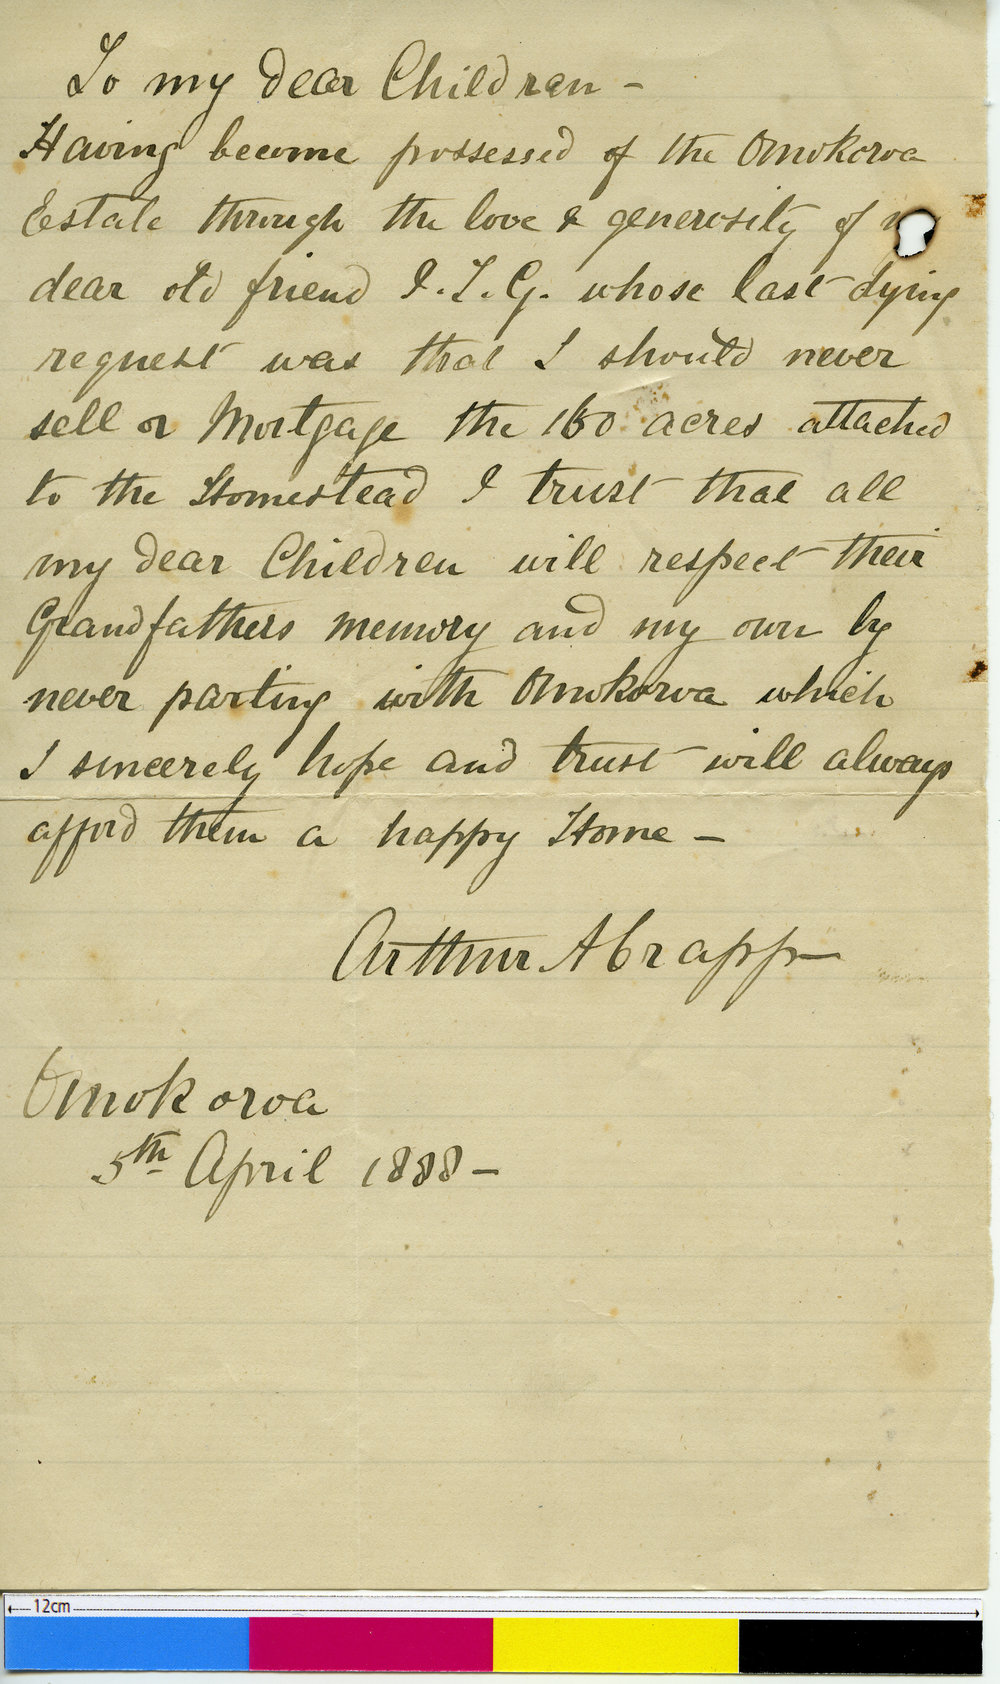 To my dear Children –
Having become possessed of the Omokoroa
Estate through the love & generosity of
dear old friend I. L. G. whose last dying
request was that I should never
sell or Mortgage the 160 acres attached
to the Homestead I trust that all
my dear Children will respect their
Grandfathers memory and my own by
never parting with Omokoroa which
I sincerely hope and trust will always
afford them a happy Home –
Arthur A Crapp
Omokoroa
5th April 1888 –
12cm